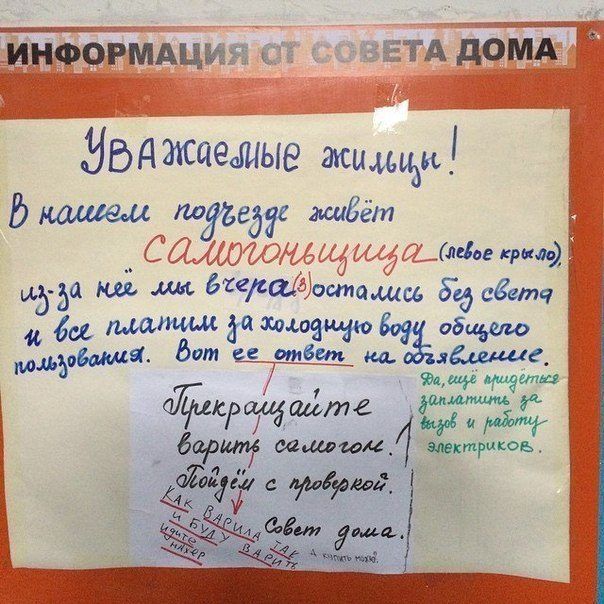 ИНФОРМАЦИЯ ОТ СОВЕТА ДОМА
Уважаемые жильцы!
В нашем подъезде живёт
самогоньщица (левое крыло),
из-за неё мы вчера(3) остались без света
и все платим за холодную воду общего
пользования. Вот ее ответ на объявление.
Да, ещё придёться
заплатить за
вызов и работу
электриков.
Прекращайте
варить самогон!
Пойдём с проверкой.
Совет дома.
КАК ВАРИЛА ТАК
И БУДУ ВАРИТЬ
идите
нахер
А купить можно?